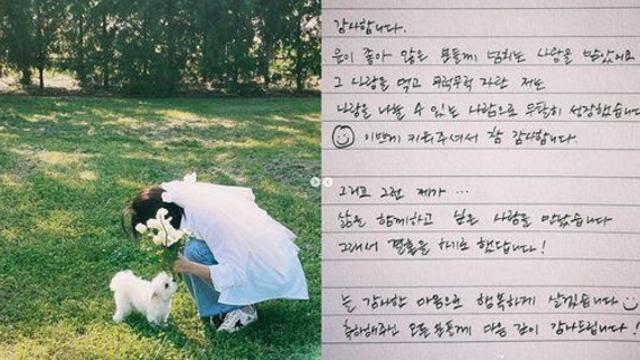 감사합니다.
운이 좋아 많은 분들께 넘치는 사랑을 받았어요
그 사랑을 먹고 무럭무럭 자란 저는
사랑을 나눌 수 있는 사람으로 무탈히 성장했습니다
이쁘게 키워주셔서 참 감사합니다.
그리고 그런 제가 ...
삶을 함께하고 싶은 사람을 만났습니다
그래서 결혼을 하기로 했답니다!
늘 감사한 마음으로 행복하게 살겠습니다
축하해주신 모든 분들께 마음 깊이 감사드립니다!